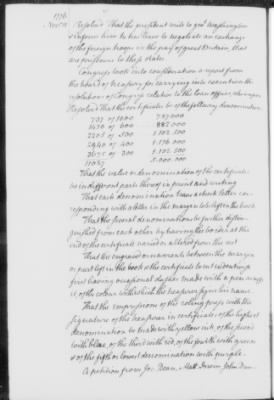 1776
Nov. 11
Resolved That the president write to genl Washington
& inform him he has leave to negotiate an exchange
of the foreign troops in the pay of great Britain, that
are prisoners to these states.
Congress took into consideration a report from
the board of treasury for carrying into execution the
resolution of Congress relative to the loan offices, whereupon
Resolved That the certificates be of the following denominations
of 1000
1470 of 600 882.000
2205 of 500 1.102.500
2940 of 400 1.176.000
3675 of 300 1.102.500
5.000.000
That the value or denomination of the certificate
be in different parts thereof in print and writing
That each denomination have a check letter cor
responding with a letter in the margin to be left in the book
That the several denominations be further distin
guished from each other by having the border at the
end of the certificate varied or altered from the rest
That the engraved ornaments between the margin
or part left in the book & the certificate be cut indenting
first having occasional dashes made with a pen
of the colour with which the treasurer signs his name
That the
signature of the treasurer in certificates of the highest
denomination be made with yellow ink, of the second
with blue, of the third with red, of the fourth with green
& of the fifth or lowest denomination with purple.
A petition from Jos. Dean,